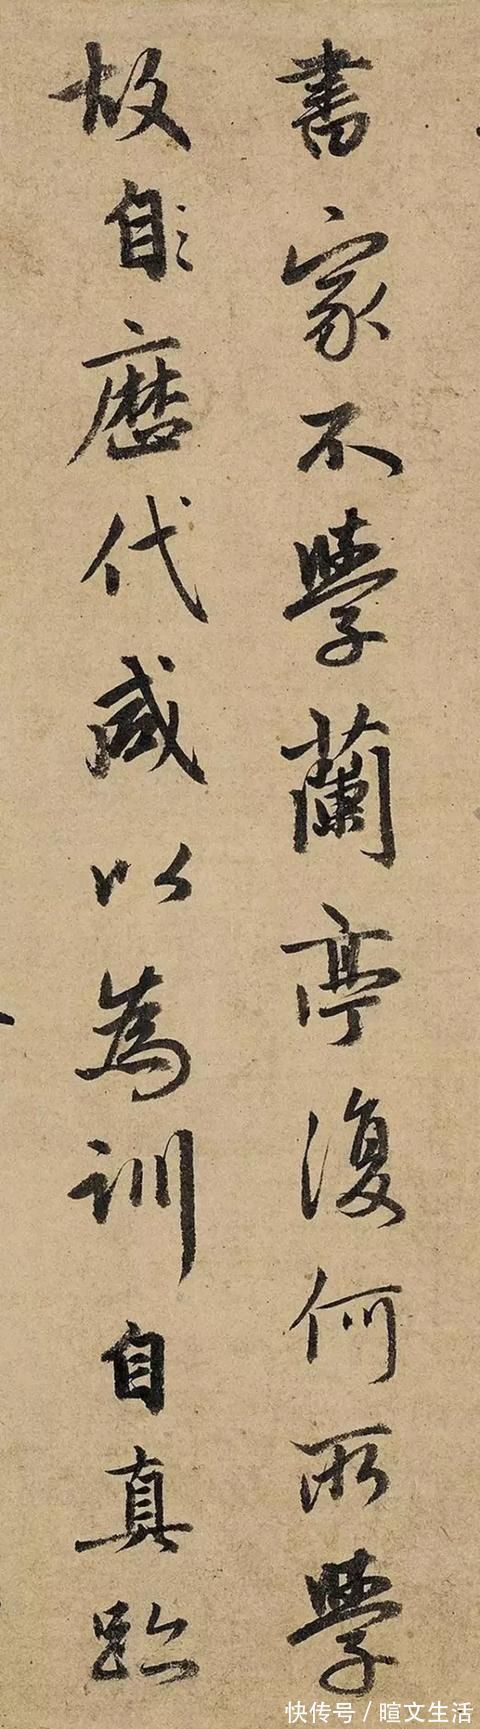 書家不學蘭亭復何所學
故自歷代咸以為訓自真跡
快传号／暄文生活